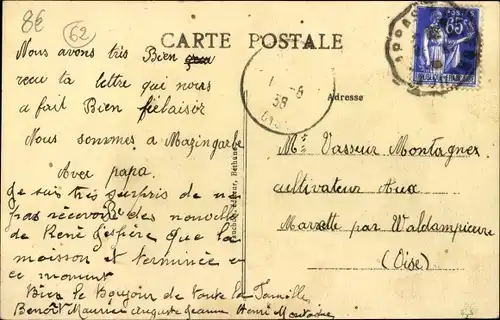 8€
62
CARTE POSTALE
Nous avons très Bien
recu ta lettre qui nous
a fait Bien
Nous sommes a Mazingarbe
Avec papa.
Je suis très surpris de ne
pas recevoir des nouvelle
de René J'espère que la
maison et terminée e
ce moment
Bien le Bonjour de toute la Famille
Benoît Maurice Auguste Jeanne Henri
1 -8
38
Adresse
65
ARRAS
Vasseur Montagnez
cultivateur Aux
Marzette par Waldampierre
(Oise)
Editeur, Béthune